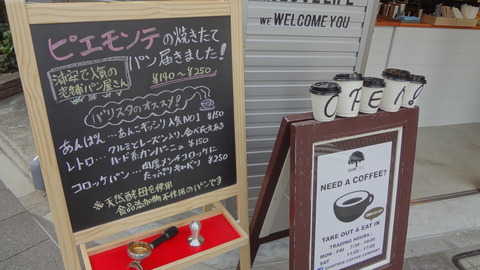 ピエモンテの焼きたて
パン届きました!
浦安で人気の
老舗パン屋さん
¥140〜¥250
バリスタのオススメ!
あんぱん…あんこギッシリ人気NO1 ¥150
レトロ…クルミとレーズン入り、食べ応えある
ハード系カンパーニュ ¥150
コロッケパン…肉屋メンチコロッケに
たっぷりキャベツ ¥250
※天然酵母を使用
食品添加物不使用のパンです
WE WELCOME YOU
OPEN!
NEED A COFFEE?
TAKE OUT & EAT IN
TRADING HOURS -
MON - FRI 7:30 - 19:00
SAT 11:00 - 17:00
COFFEE COMPANY